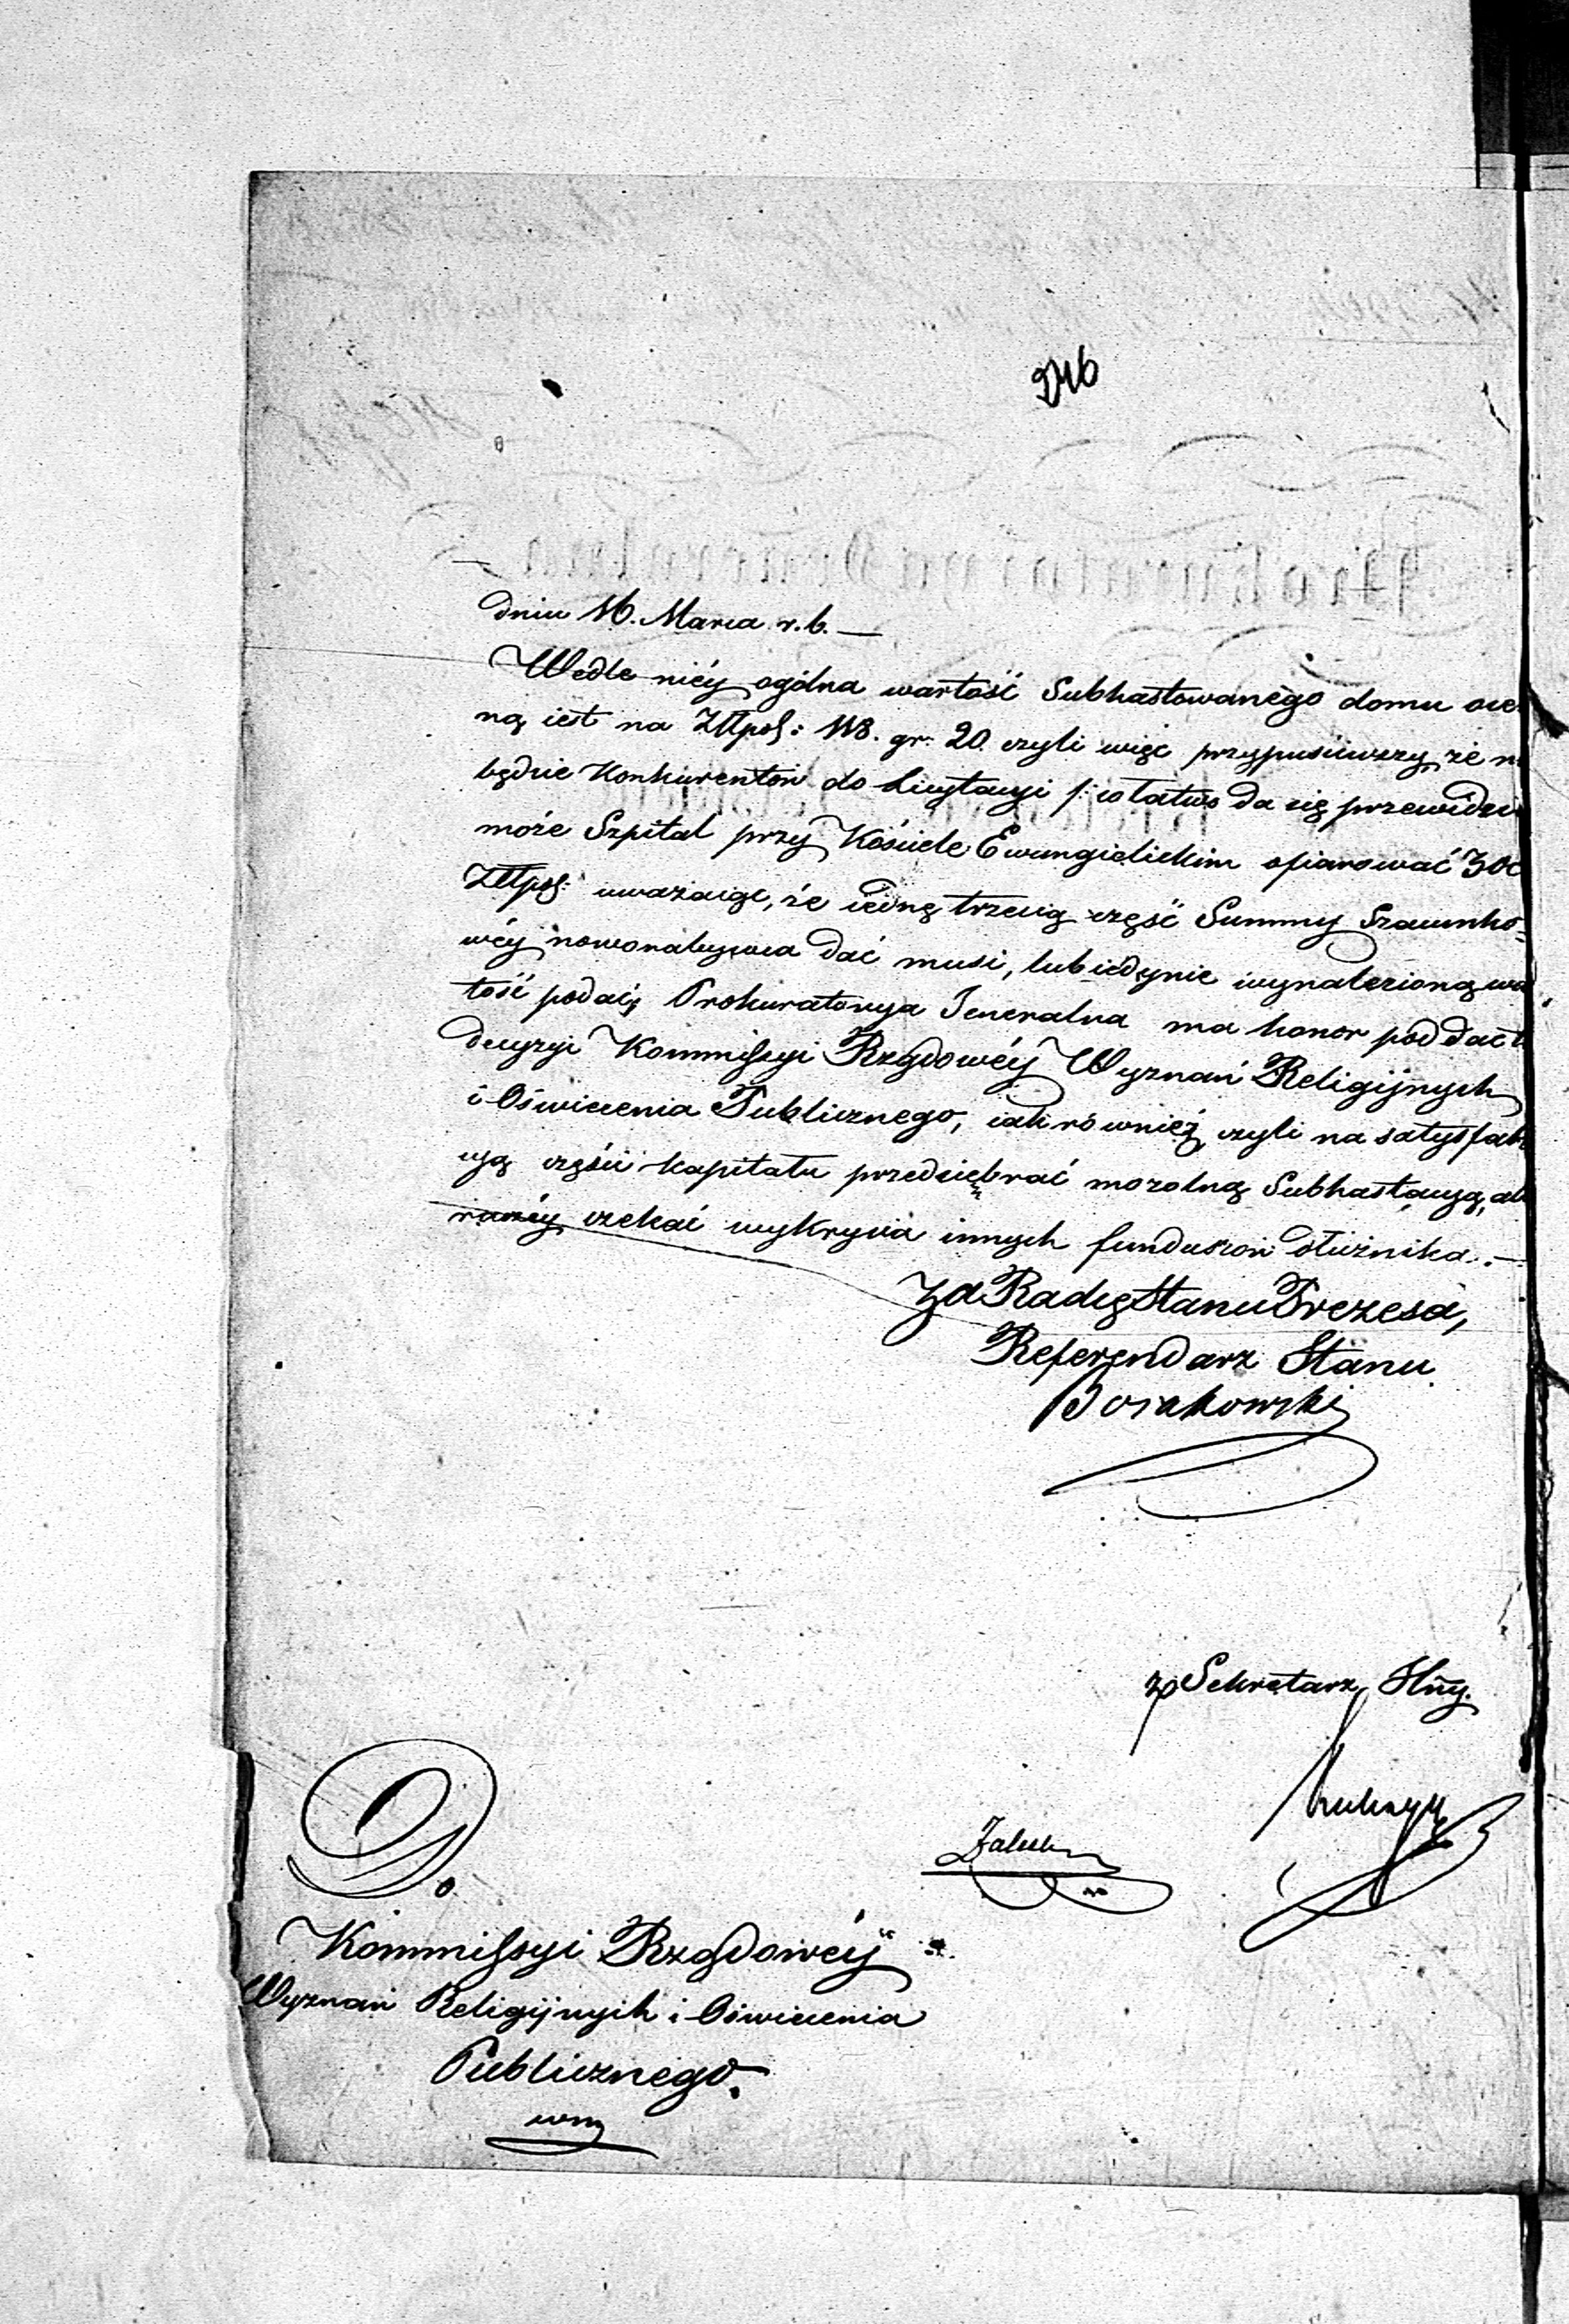 dniu 16. Marca r. b. —
Wedle niéy ogólna wartość Subhastowanégo domu oce-
ną iest na Złłpols: 118. gr: 20. czyli więc przypuściwszy, że n
będzie Konkurentów do Licytacyi /: co łatwo da się przewidzi
może Szpital przy Kościele Ewangielickim ofiarować 300
Złłpols: uważaiąc, że iedną trzecią część Summy Szacunko-
wéy nowonabywca dać musi, lub iedynie wynalezioną wa
tość podaić, Prokuratorya Jeneralna ma honor poddać t
decyzyi Kommissyi Rządowéy Wyznań Religijnych
i Oświecenia Publicznego, iak również, czyli na satysfak
cyą części kapitału przedsiębrać mozolną Subhastacyą, al
raczéy czekać wykrycia innych funduszów dłużnika. —
Za Radcę Stanu Prezesa,
Referendarz Stanu
zp Sekretarz
Do
Kommissyi Rządowéy
Wyznań Religijnych i Oświecenia
Publicznego.